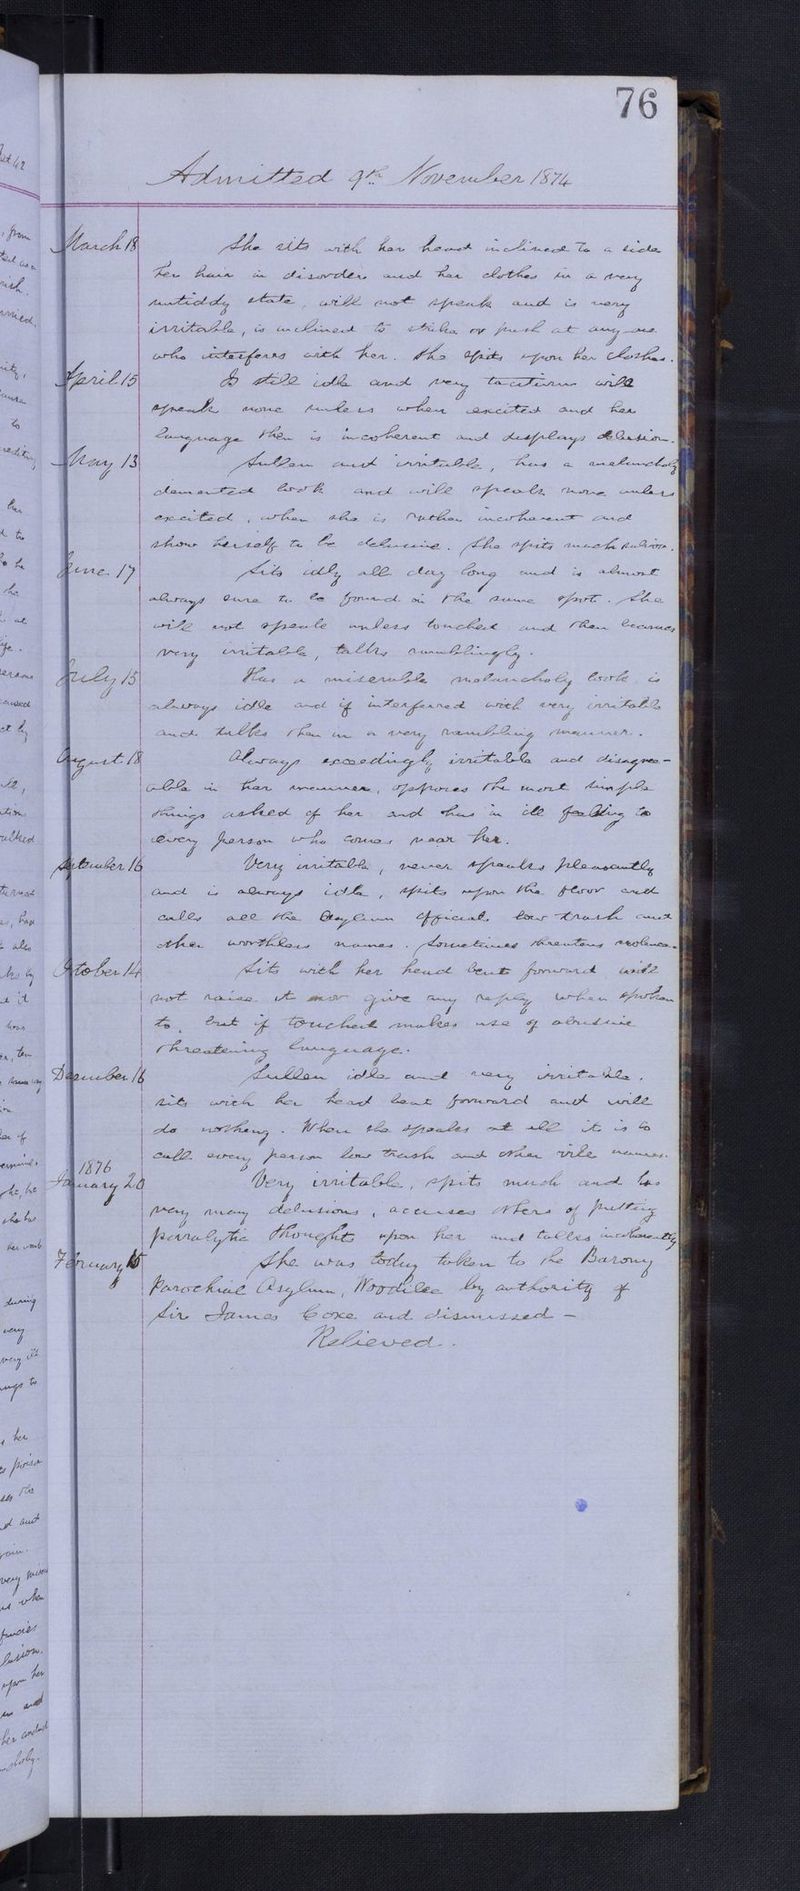 76
Admitted 9th November 1874
March 18 She sits with her head inclined to a side
her hair in disorder and her clothes in a very
untiddy state, will not speak and is very
irritable, is inclined to strike or push at any one
who interferes with her. She spits upon her clothes.
April 15 Is still idle and very taciturn will
speak none unless when excited and her
language then is incoherent and displays delusion.
May 13 Sullen and irritable, has a melancholy
demented look and will speak none unless
excited, when she is rather incoherent and
show herself to be delusive. She spits much saliva.
June 17 Sits idly all day long and is almost
always sure to be found in the same spot. She
will not speak unless touched and then becomes
very irritable, talks ramblingly.
July 15 Has a miserable melancholy look is
always idle and if interferred with very irritable
and talks then in a very rambling manner.
August 18 Always exceedingly irritable and disagree-
able in her manner, opposes the most simple
things asked of her and has an ill feeling to
every person who comes near her.
September 16 Very irritable, never speaks pleasantly
and is always idle, spits upon the floor and
calls all the Asylum officials low trash and
other worthless names. Sometimes threatens violence.
October 14 Sits with her head bent forward will
not raise it nor give any reply when spoken
to, but if touched makes use of abusive
threatening language.
December 16 Sullen idle and very irritable,
sits with her head bent forward and will
do nothing. When she speaks at all it is to
call every person low trash and other vile names.
1876
January 20 Very irritable, spits much and has
very many delusions, accuses others of putting
parralytic thoughts upon her and talks incoherently
February 15 She was today taken to the Barony
Parochial Asylum, Woodilee by authority of
Sir James Coxe and dismissed –
Relieved.